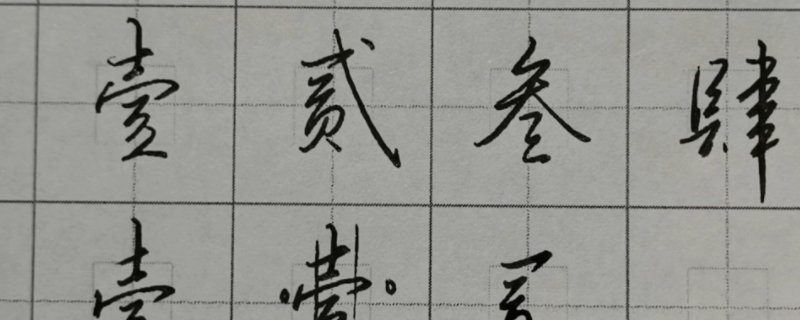 壹贰叁肆
壹壹